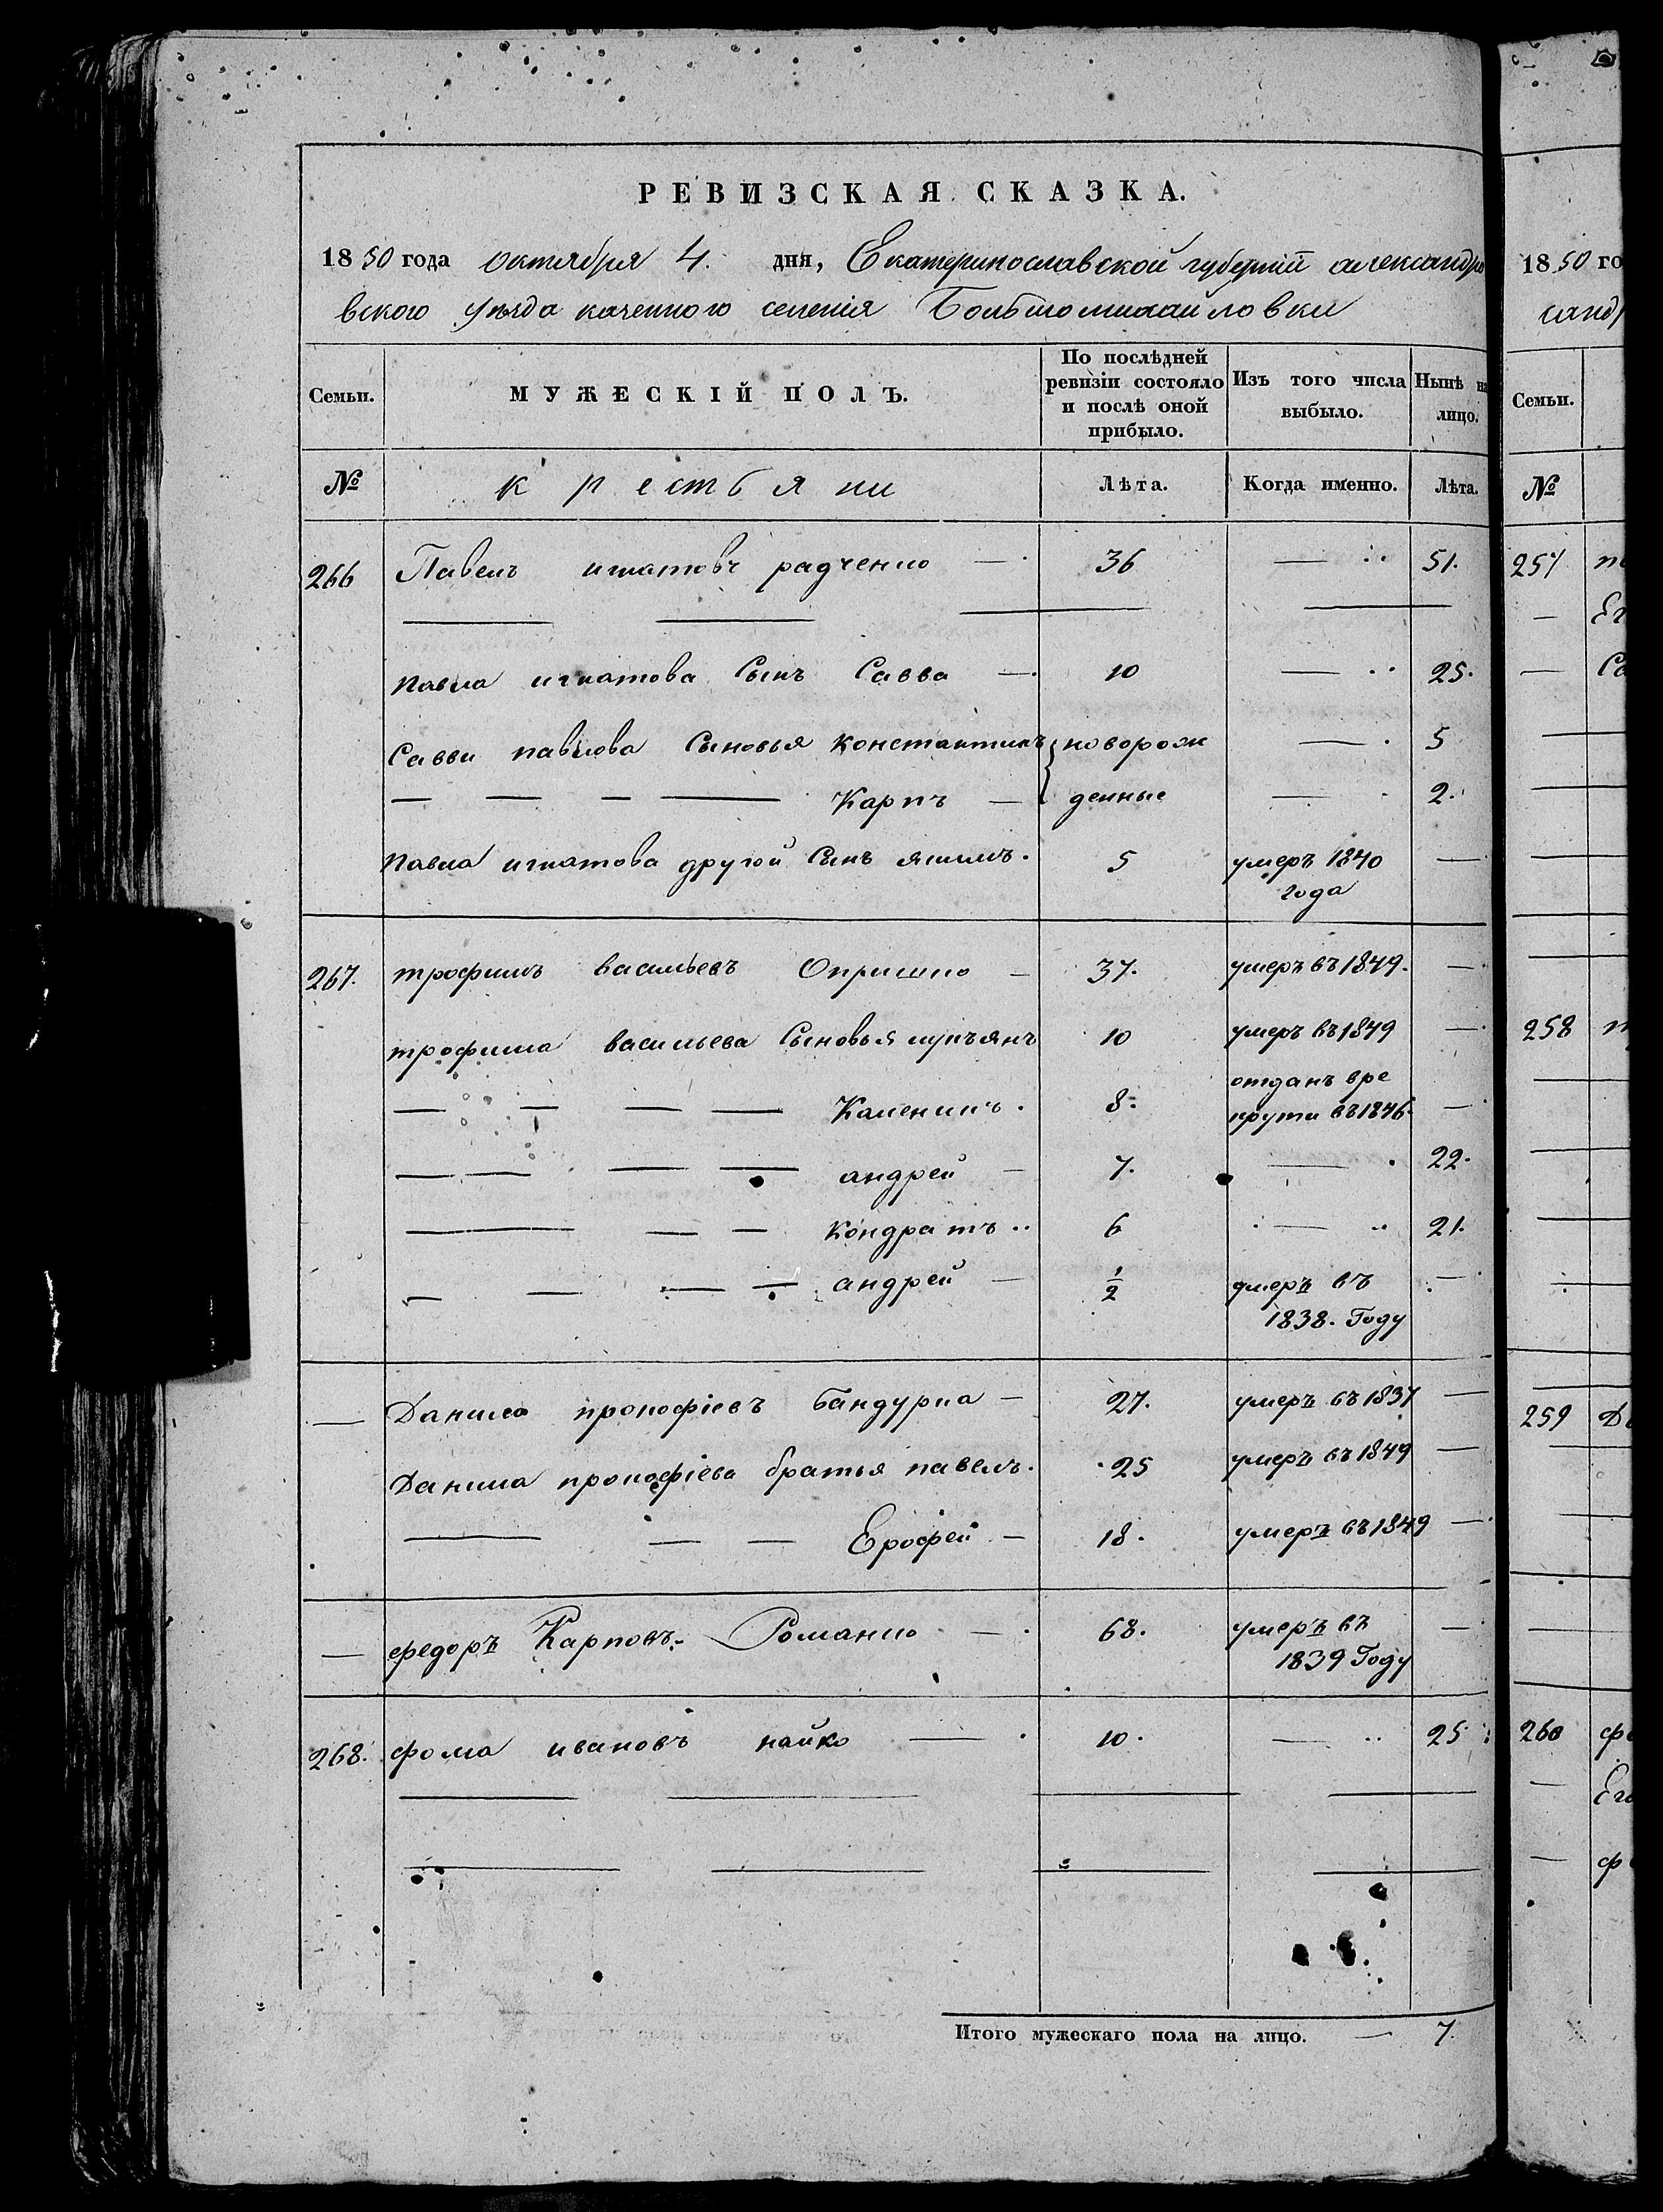 РЕВИЗСКАЯ СКАЗКА.
1850 года октября 4. дня, Екатеринославской губернiи александро
вского уѣзда казенного селенiя Большомихайловки
Семьи. МУЖЕСКIЙ ПОЛЪ. По послѣдней ревизiи состояло и послѣ оной прибыло. Изъ того числа выбыло. Нынѣ на лицо.
№ крестьяни Лѣта. Когда именно. Лѣта.
266 Павелъ игнатовъ радченко — 36 — 51.
Павла игнатова Сынъ Савва — 10 — 25.
Савви павлова Сыновья константинъ новорож — 5
— — — — Карпъ — денные — 2.
Павла игнатова другой Сынъ якимъ. 5 умеръ 1840 —
года
267. трофимъ васильевъ Опришко — 37. умеръ въ 1849. —
трофима васильева Сыновья лукъянъ 10 умеръ въ 1849 —
отданъ вре
— — — — Каленикъ. 8. крути въ 1846. —
— — — — андрей — 7. — 22.
— — — кондратъ 6 — 21.
— — — — андрей — 1/2 умеръ въ —
1838. Году
— Данило прокофiевъ бандурка — 27. умеръ въ 1837 —
Данила прокофiева братья павелъ. 25 умеръ въ 1849 —
— — — Ерофей — 18. умеръ въ 1849 —
— федоръ Карповъ Романко — 68. умеръ въ —
1839 Году
268. фома ивановъ найко — 10. — 25
Итого мужескаго пола на лицо. — 7.
1850 го
санд
Семьи.
№
257
— Ег
— Са
258
259 Д
260 фо
— Его
— ф